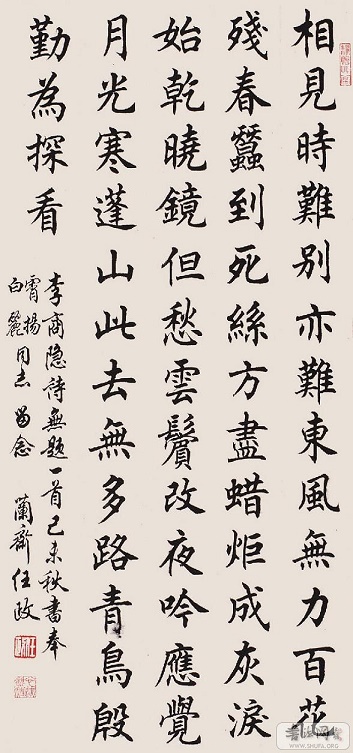 相見時難別亦難東風無力百花
殘春蠶到死絲方盡蜡炬成灰淚
始乾曉鏡但愁雲鬢改夜吟應覺
月光寒蓬山此去無多路青鳥殷
勤為探看
李商隐詩無題一首己未秋書奉
霄揚
白
同志 留念 蘭齋任政
WWW.SHUFA.ORG